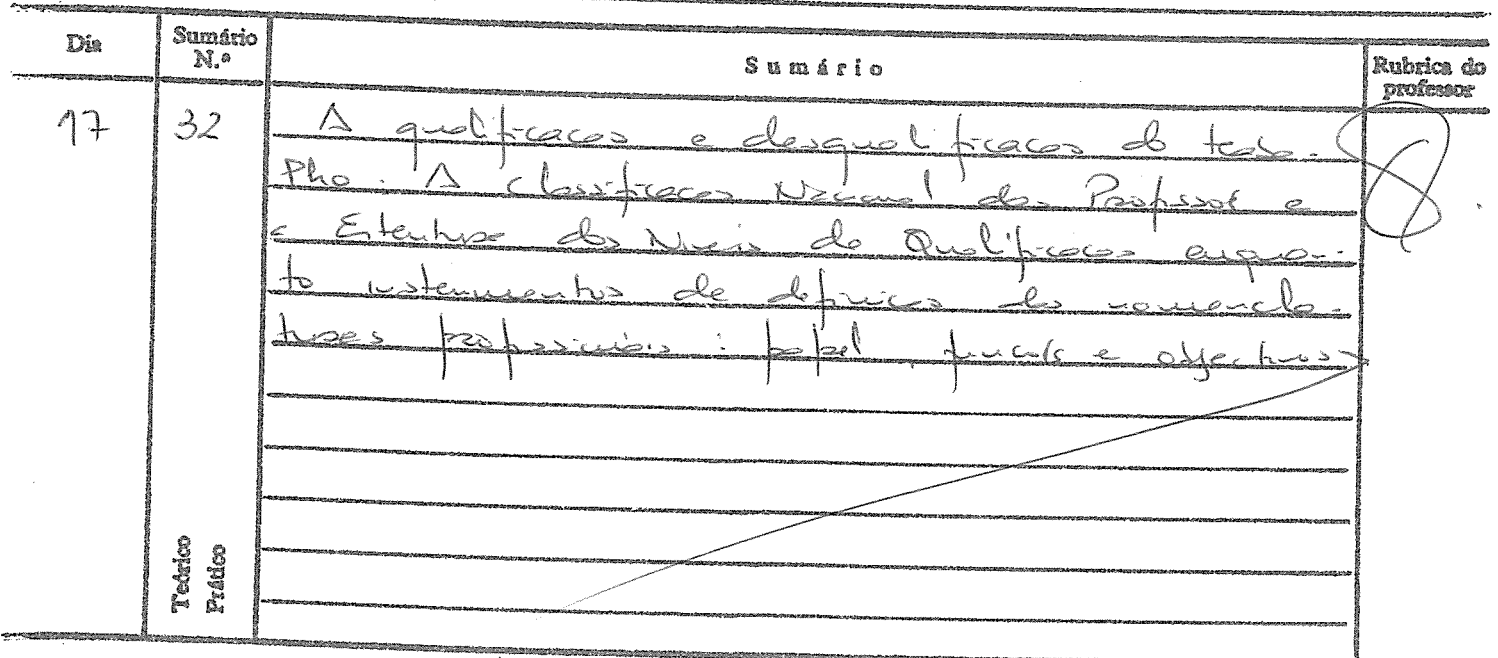 Dia Sumário N.º Sumário Rubrica do professor
17 32 A qualificação e desqualificação do traba-
lho. A Classificação Nacional das Profissões e
a Estrutura dos Níveis de Qualificação enquan-
to instrumentos de definição das nomencla-
turas profissionais: papel, funções e objectivos
Teórico
Prático